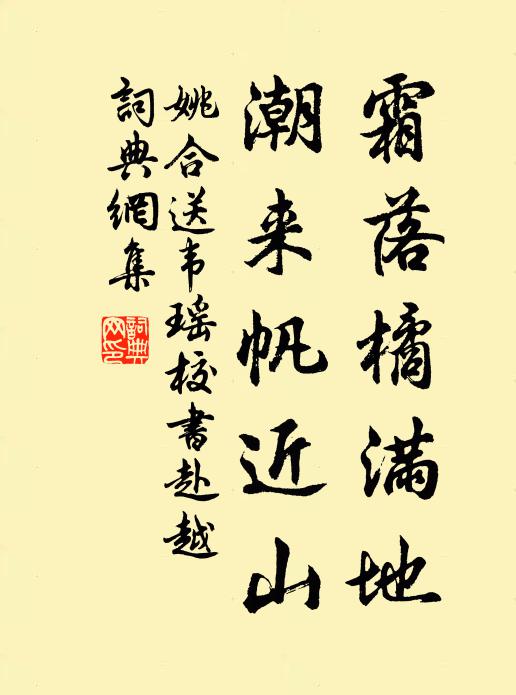 霜落橘满地
潮来帆近山
姚合送韦瑶校书赴越
詞典網集
詞典网印